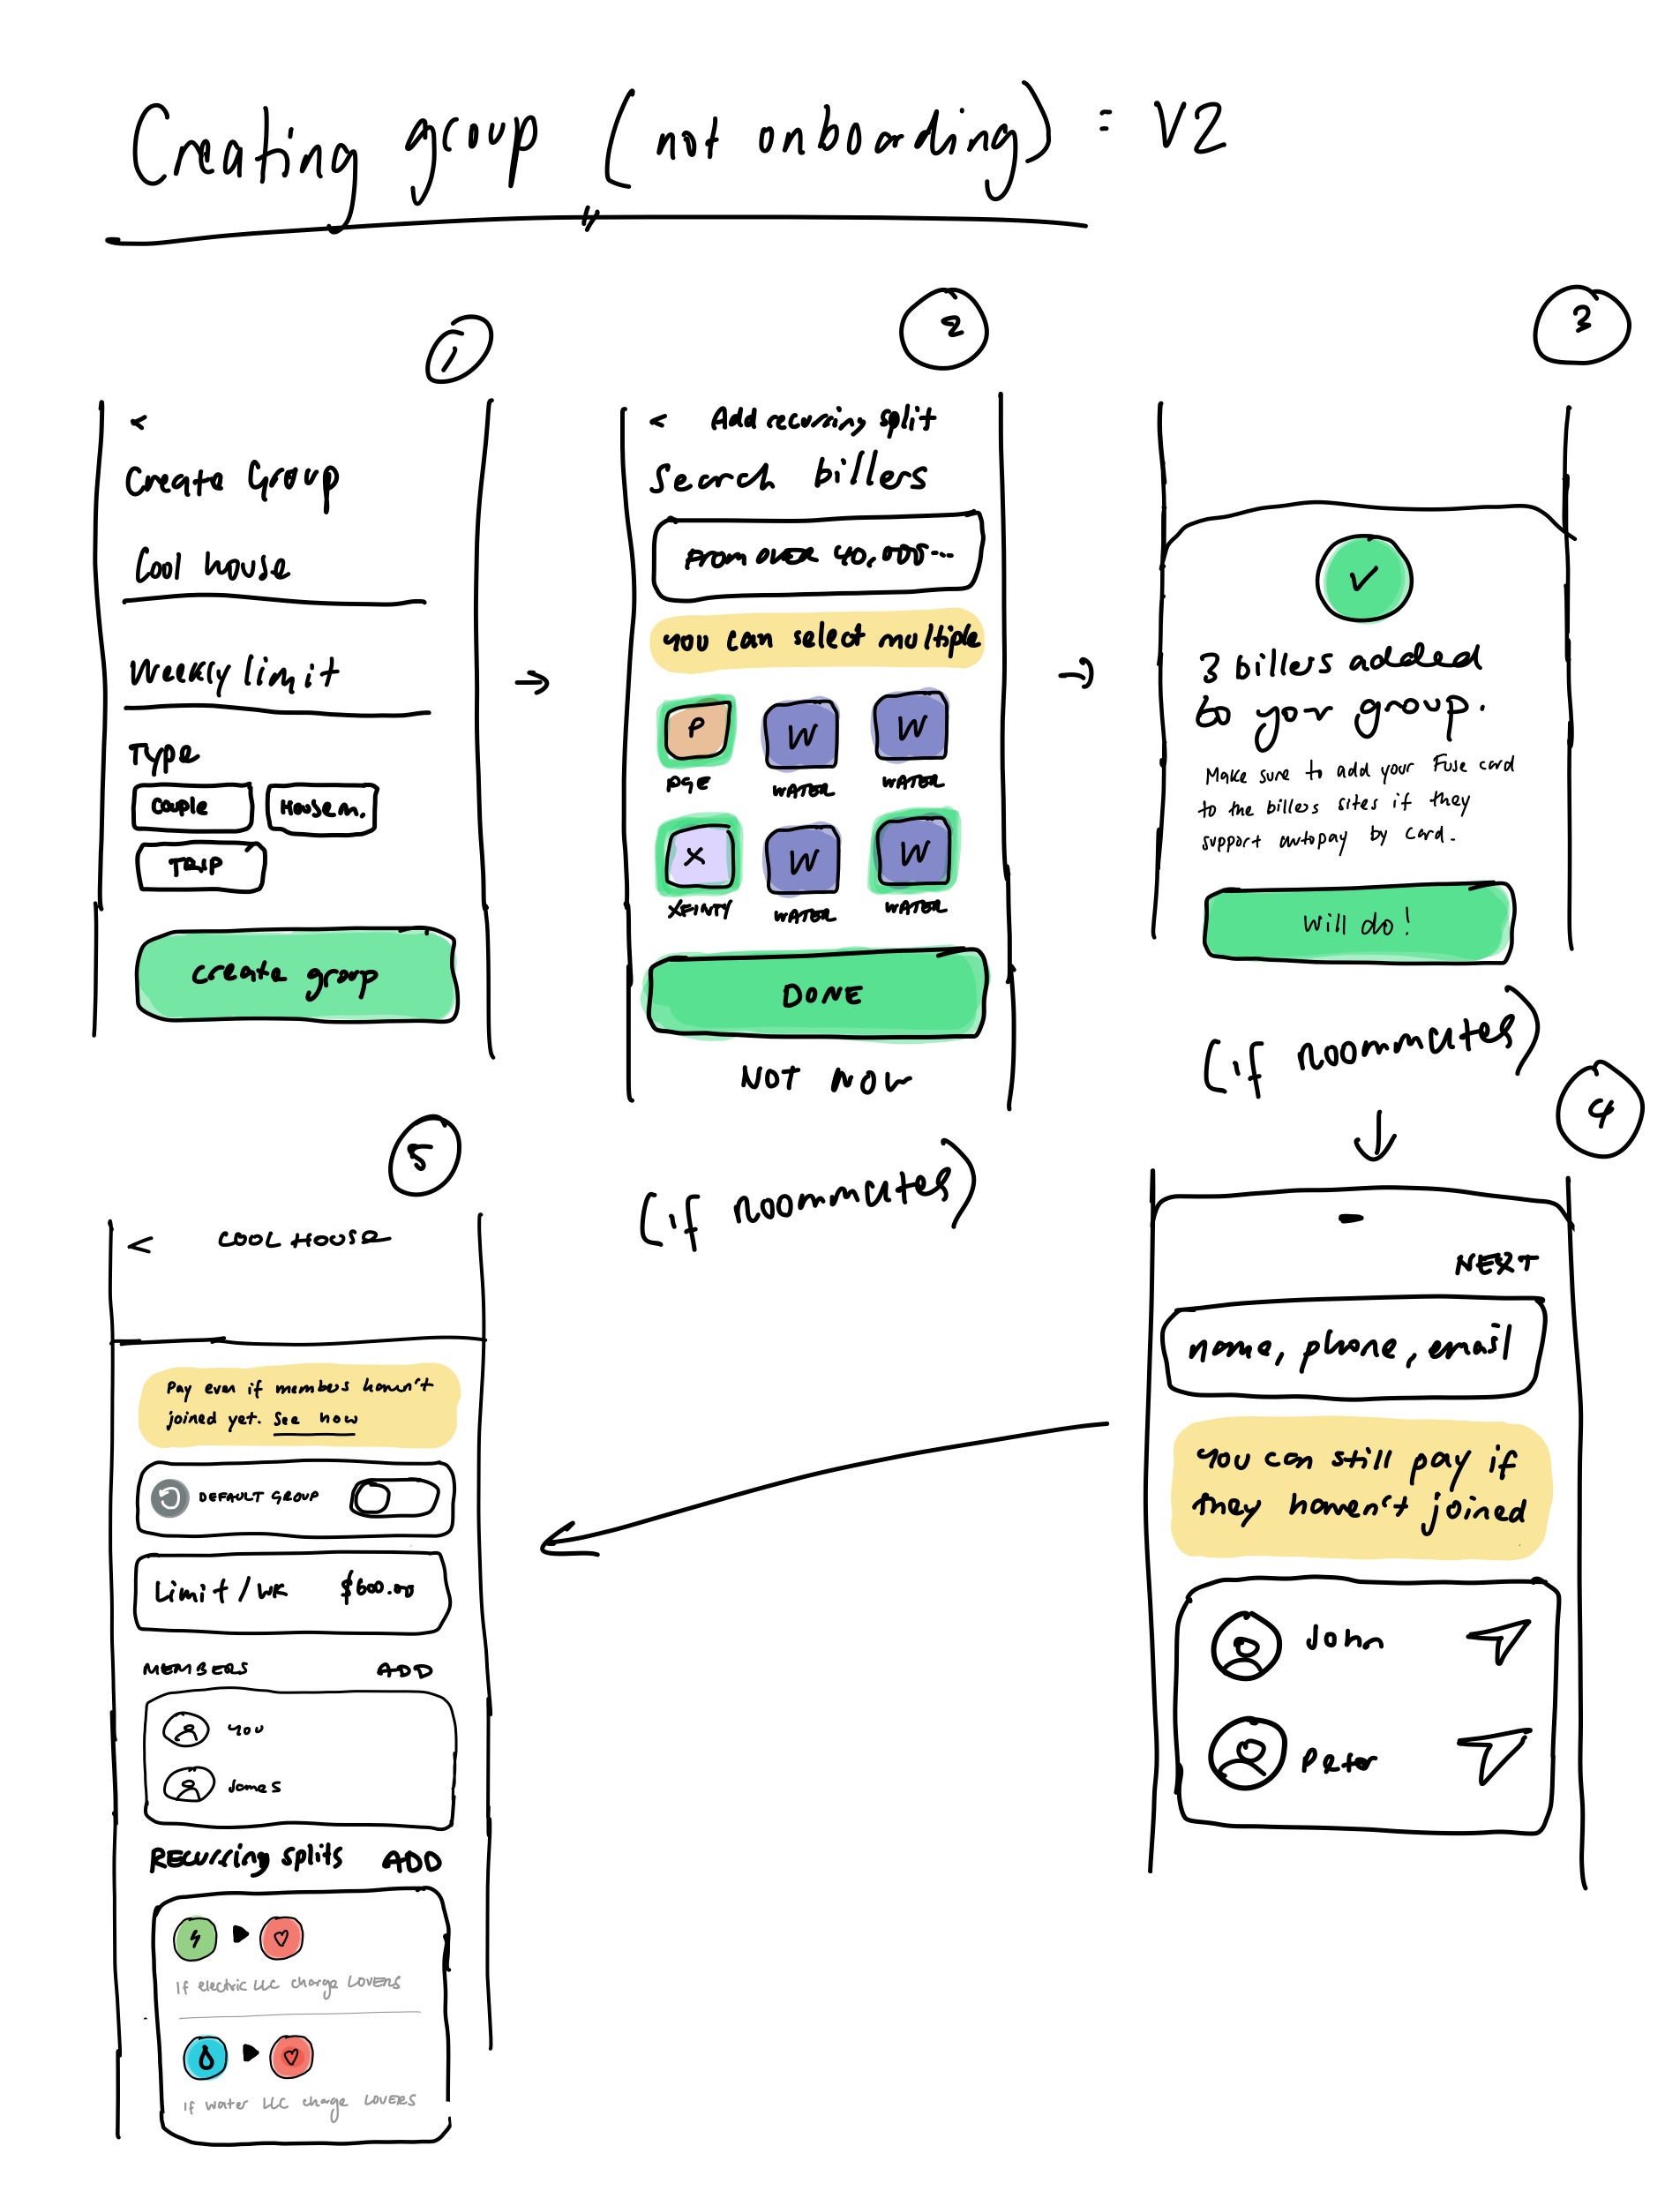 Creating group (not onboarding) = V2
1
<
Create Group
Cool house
Weekly limit
Type
Couple
Housem.
TRIP
create group
2
< Add recurring split
Search billers
From over 40,000...
you can select multiple
P
W
W
PGE
WATER
WATER
X
W
W
XFINTY
WATER
WATER
DONE
NOT NOW
3
3 billers added
to your group.
Make sure to add your Fuse card
to the billers sites if they
support autopay by card.
Will do!
(if roommates)
4
NEXT
name, phone, email
You can still pay if
they haven't joined
John
Peter
(if roommates)
5
< COOL HOUSE
Pay even if members haven't
joined yet. See how
DEFAULT GROUP
Limit / wk $600.00
MEMBERS ADD
you
James
Recurring splits ADD
If electric LLC charge LOVERS
if water LLC charge LOVERS